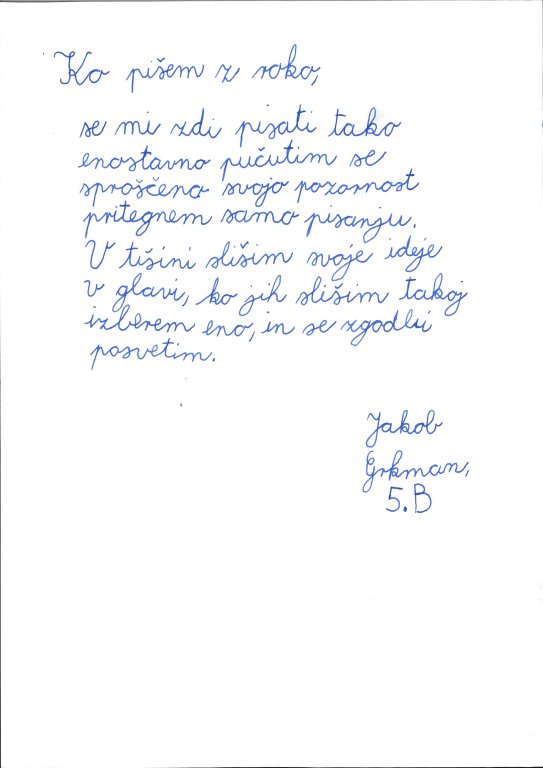 Ko pišem z roko,
se mi zdi pisati tako
enostavno pučutim se
sproščeno svojo pozornost
pritegnem samo pisanju.
V tišini slišim svoje ideje
v glavi, ko jih slišim takoj
izberem eno, in se zgodbi
posvetim.
Jakob
Grkman,
5.B